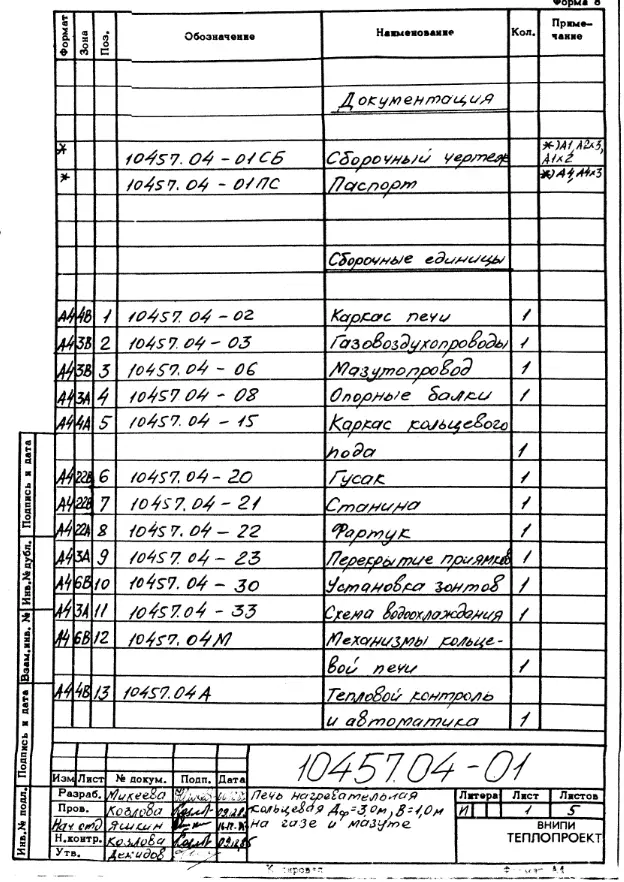 Форма 8
Формат Зона Поз. Обозначение Наименование Кол. Приме-
чание
Документация
* 10457.04-01СБ Сборочный чертеж *)А1, А2х3,
А1х2
* 10457.04-01ПС Паспорт *)А4, А4х3
Сборочные единицы
А4 4В 1 10457.04-02 Каркас печи 1
А4 3В 2 10457.04-03 Газовоздухопроводы 1
А4 3В 3 10457.04-06 Мазутопровод 1
А4 3А 4 10457.04-08 Опорные балки 1
А4 4А 5 10457.04-15 Каркас кольцевого
пода 1
А4 22В 6 10457.04-20 Гусак 1
А4 22В 7 10457.04-21 Станина 1
А4 22А 8 10457.04-22 Фартук 1
А4 3А 9 10457.04-23 Перекрытие приямков 1
А4 6В 10 10457.04-30 Установка зонтов 1
А4 3А 11 10457.04-33 Схема водоохлаждения 1
А4 6В 12 10457.04М Механизмы кольце-
вой печи 1
А4 4В 13 10457.04А Тепловой контроль
и автоматика 1
Инв.№ подл. Подпись и дата Взам.инв. № Инв.№ дубл. Подпись и дата
10457.04-01
Изм Лист № докум. Подп. Дата
Разраб. Микеева
Пров. Козлова
Нач. отд Яшкин
Н.контр. Козлова
Утв. Демидов
Печь нагревательная
кольцевая Дф=3,0м, В=1,0м
на газе и мазуте
Литера Лист Листов
И 1 5
ВНИПИ
ТЕПЛОПРОЕКТ
Копировал Формат А4